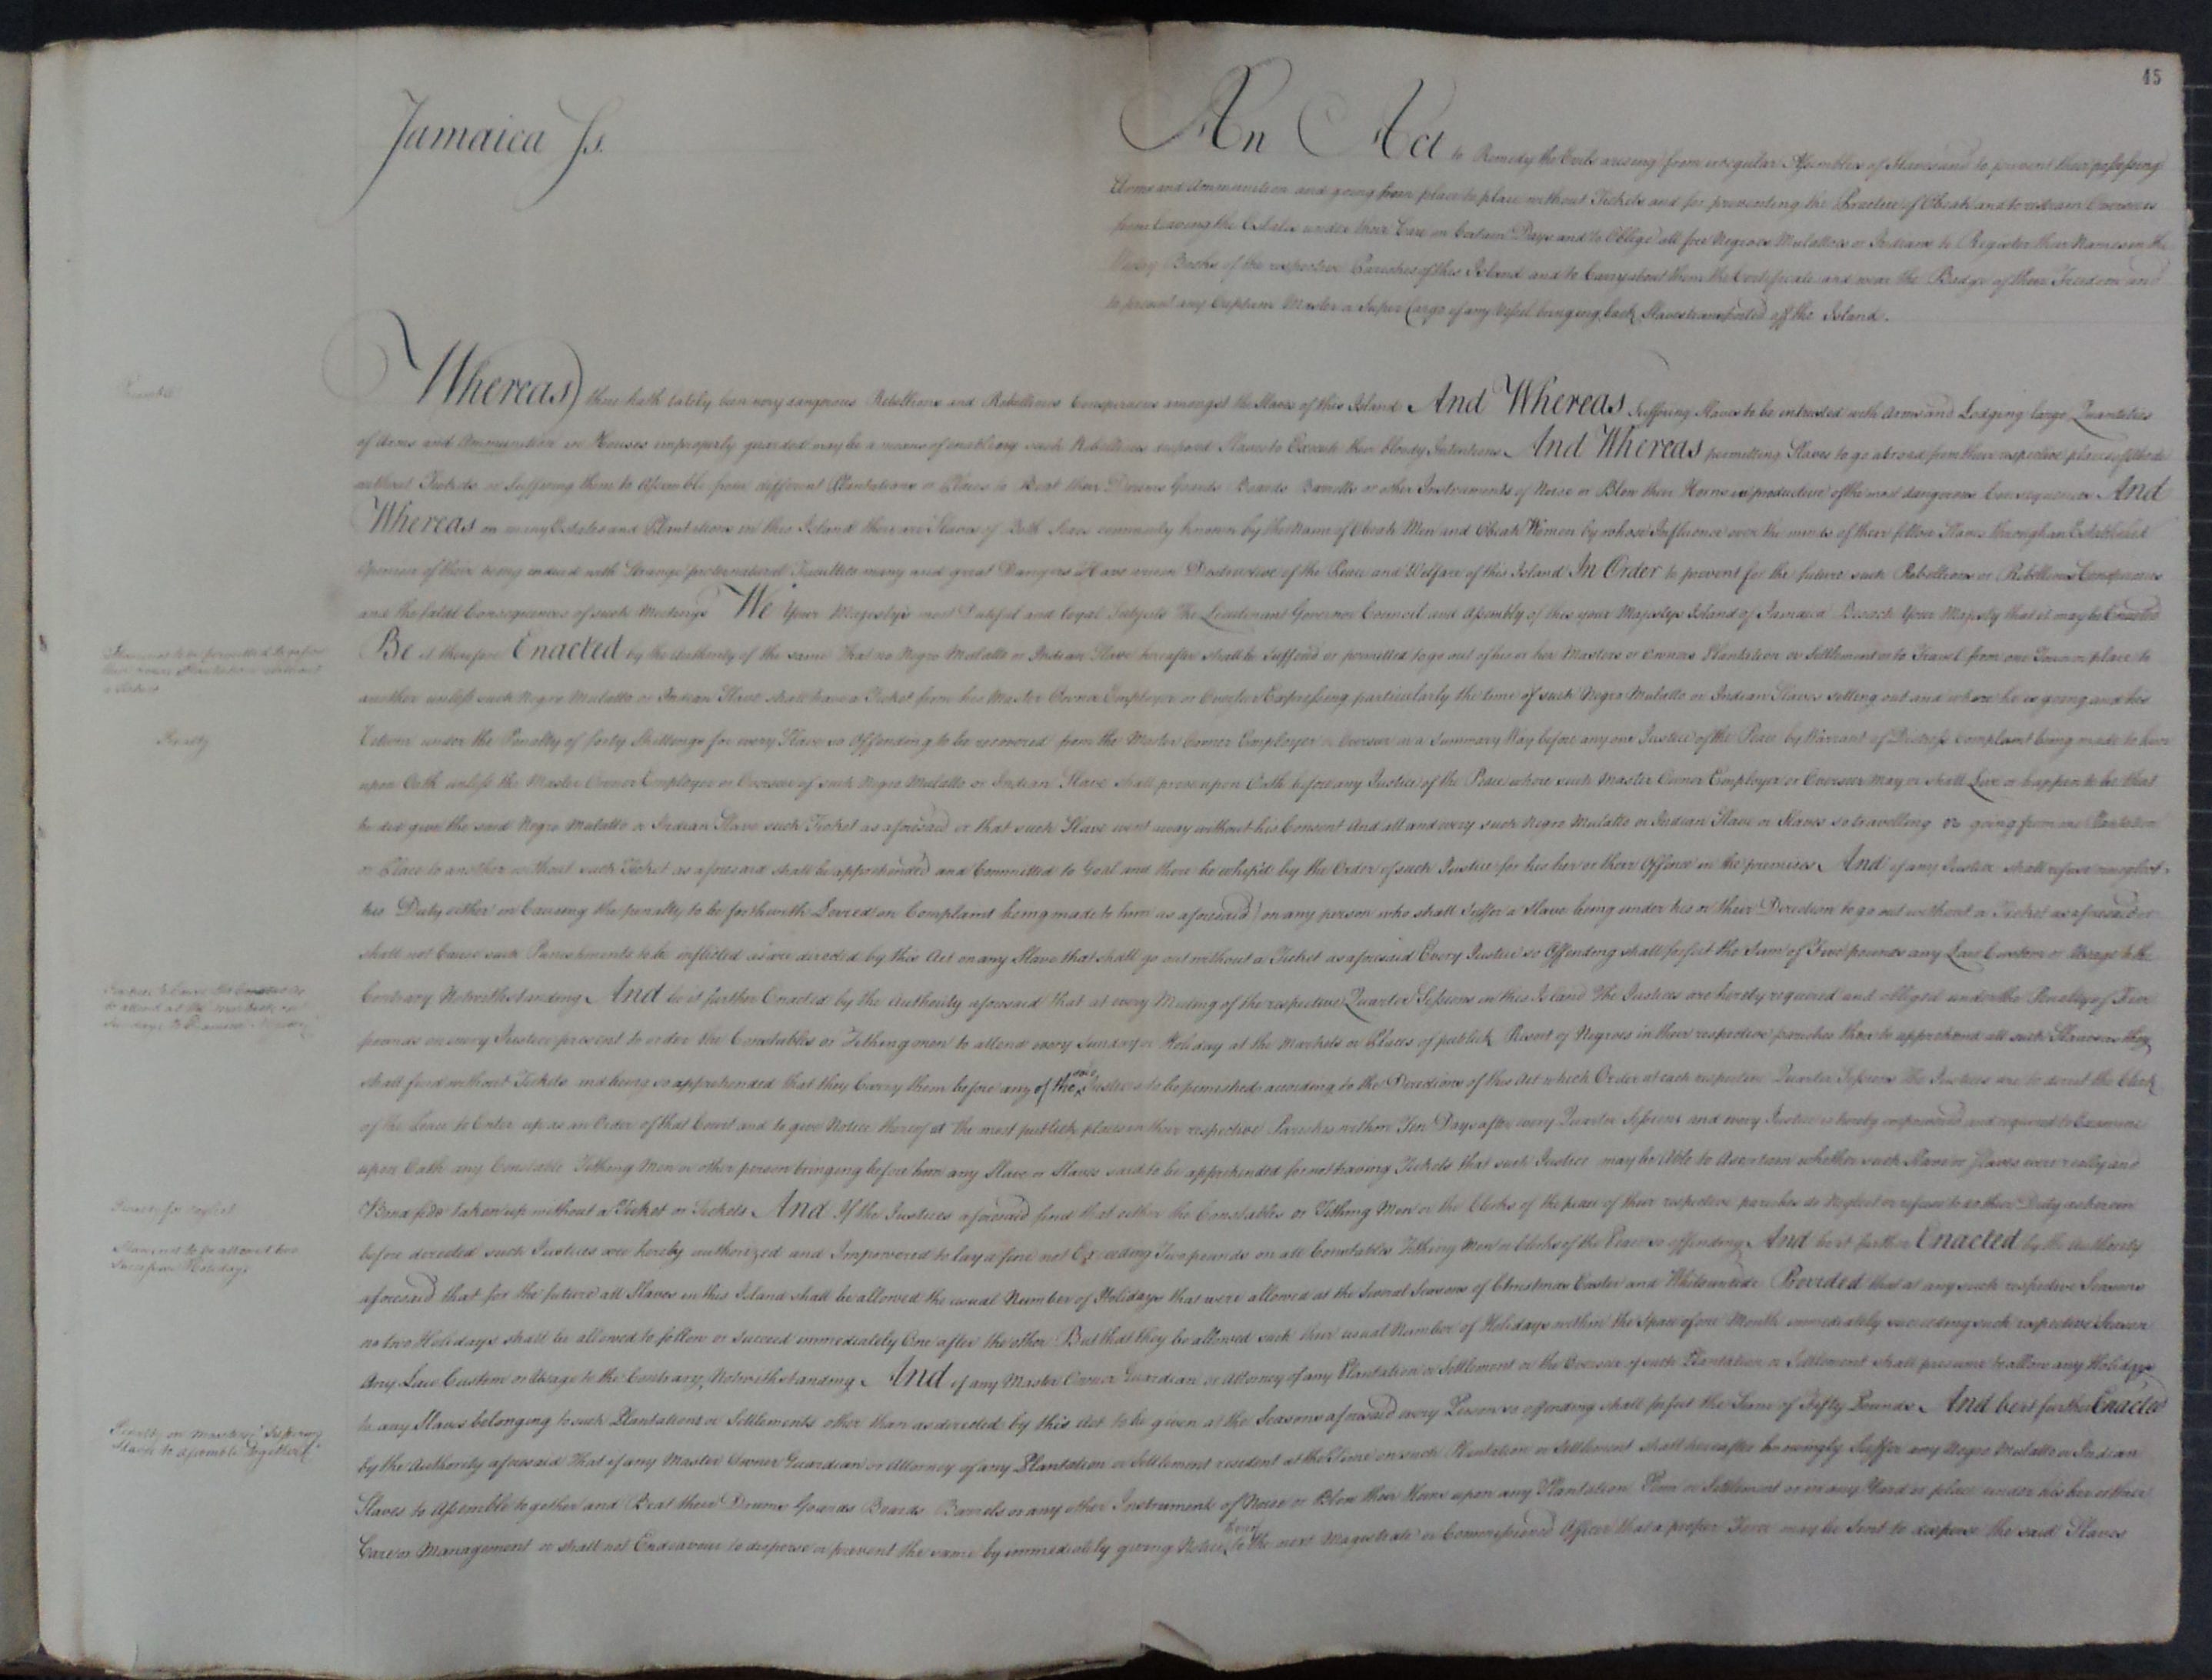 45
Jamaica Ss.
An Act to Remedy the Evils arising from irregular Assemblies of Slaves and to prevent their possessing
Arms and Ammunition and going from place to place without Tickets and for preventing the Practice of Obeah and to restrain Overseers
from leaving the Estates under their Care on Certain Days and to Oblige all free Negroes Mulattoes or Indians to Register their Names in the
Vestry Books of the respective Parishes of this Island and to Carry about them the Certificate and wear the Badge of their Freedom and
to prevent any Captain Master or Super Cargo of any Vessel bringing back Slaves transported off the Island.
Whereas there hath lately been very dangerous Rebellions and Rebellious Conspiracies amongst the Slaves of this Island And Whereas Suffering Slaves to be intrusted with Arms and Lodging large Quantities
of Arms and Ammunition in Houses improperly guarded may be a means of enabling such Rebellious disposed Slaves to Execute their bloody Intentions And Whereas permitting Slaves to go abroad from their respective places of abode
without Tickets or Suffering them to Assemble from different Plantations or Places to Beat their Drums Gourds Boards Barrells or other Instruments of Noise or Blow their Horns is productive of the most dangerous Consequences And
Whereas on many Estates and Plantations in this Island there are Slaves of Both Sexes commonly known by the Name of Obeah Men and Obeah Women by whose Influence over the minds of their fellow Slaves through an Established
Opinion of their being endued with Strange preternatural Faculties many and great Dangers Have arisen Destructive of the Peace and Welfare of this Island In Order to prevent for the future such Rebellions or Rebellious Conspiracies
and the fatal Consequences of such Meetings We Your Majesty's most Dutiful and loyal Subjects The Lieutenant Governor Council and Assembly of this your Majestys Island of Jamaica Beseech Your Majesty that it may be Enacted
Slaves not to be permitted to go from their own Plantations without a Ticket
Be it therefore Enacted by the Authority of the same That no Negro Mulatto or Indian Slave hereafter shall be Suffered or permitted to go out of his or her Masters or Owners Plantation or Settlement or to Travel from one Town or place to
another unless such Negro Mulatto or Indian Slave shall have a Ticket from his Master Owner Employer or Overseer Expressing particularly the time of such Negro Mulatto or Indian Slaves setting out and where he is going and his
Penalty
Return under the Penalty of forty Shillings for every Slave so Offending to be recovered from the Master Owner Employer or Overseer in a Summary Way before any one Justice of the Peace by Warrant of Distress Complaint being made to him
upon Oath unless the Master Owner Employer or Overseer of such Negro Mulatto or Indian Slave shall prove upon Oath before any Justice of the Peace where such Master Owner Employer or Overseer may or shall Live or happen to be that
he did give the said Negro Mulatto or Indian Slave such Ticket as aforesaid or that such Slave went away without his Consent And all and every such Negro Mulatto or Indian Slave or Slaves so travelling or going from one Plantation
or Place to another without such Ticket as aforesaid shall be apprehended and Committed to Goal and there be whip'd by the Order of such Justice for his her or their Offence in the premises And if any Justice shall refuse or neglect
his Duty either in Causing the penalty to be forthwith Levied on Complaint being made to him as aforesaid on any person who shall Suffer a Slave being under his or their Direction to go out without a Ticket as aforesaid or
shall not Cause such Punishments to be inflicted as are directed by this Act on any Slave that shall go out without a Ticket as aforesaid Every Justice so Offending shall forfeit the Sum of Five pounds any Law Custom or Usage to the
Contrary Notwithstanding And be it further Enacted by the Authority aforesaid that at every Meeting of the respective Quarter Sessions in this Island The Justices are hereby required and obliged under the Penalty of Five
pounds on every Justice present to order the Constables or Tithingmen to attend every Sunday or Holiday at the Markets or Places of publick Resort of Negroes in their respective parishes there to apprehend all such Slaves as they
shall find without Tickets and being so apprehended that they Carry them before any of the said Justices to be punished according to the Directions of this Act which Order at each respective Quarter Sessions the Justices are to direct the Clerk
of the Peace to Enter up as an Order of that Court and to give Notice thereof at the most publick places in their respective Parishes within Ten Days after every Quarter Sessions and every Justice is hereby impowered and required to Examine
upon Oath any Constable Tithing Men or other person bringing before him any Slave or Slaves said to be apprehended for not having Tickets that such Justice may be Able to Ascertain whether such Slave or Slaves were really and
Penalty for neglect
Bona fide taken up without a Ticket or Tickets And If the Justices aforesaid find that either the Constables or Tithing Men or the Clerks of the peace of their respective parishes do Neglect or refuse to do their Duty as herein
Slaves not to be allowed two Successive Holidays
before directed such Justices are hereby authorized and Impowered to lay a fine not Exceeding Two pounds on all Constables Tithing Men or Clerks of the Peace so offending And be it further Enacted by the Authority
aforesaid that for the future all Slaves in this Island shall be allowed the usual Number of Holidays that were allowed at the Several Seasons of Christmas Easter and Whitsuntide Provided that at any such respective Seasons
no two Holidays shall be allowed to follow or Succeed immediately One after the other But that they be allowed such their usual Number of Holidays within the Space of one Month immediately succeeding such respective Season
Any Law Custom or Usage to the Contrary Notwithstanding And if any Master Owner Guardian or Attorney of any Plantation or Settlement or the Overseer of such Plantation or Settlement shall presume to allow any Holidays
to any Slaves belonging to such Plantations or Settlements other than as directed by this Act to be given at the Seasons aforesaid every Person so offending shall forfeit the Sum of Fifty Pounds And be it further Enacted
Penalty on Masters Suffering Slaves to Assemble Together
by the Authority aforesaid That if any Master Owner Guardian or Attorney of any Plantation or Settlement resident at the Time on such Plantation or Settlement shall hereafter knowingly Suffer any Negro Mulatto or Indian
Slaves to Assemble together and Beat their Drums Gourds Boards Barrels or any other Instruments of Noise or Blow their Horns upon any Plantation Penn or Settlement or in any Yard or place under his her or their
Care or Management or shall not Endeavour to disperse or prevent the same by immediately giving Notice thereof to the next Magistrate or Commissioned Officer that a proper Force may be Sent to disperse the said Slaves